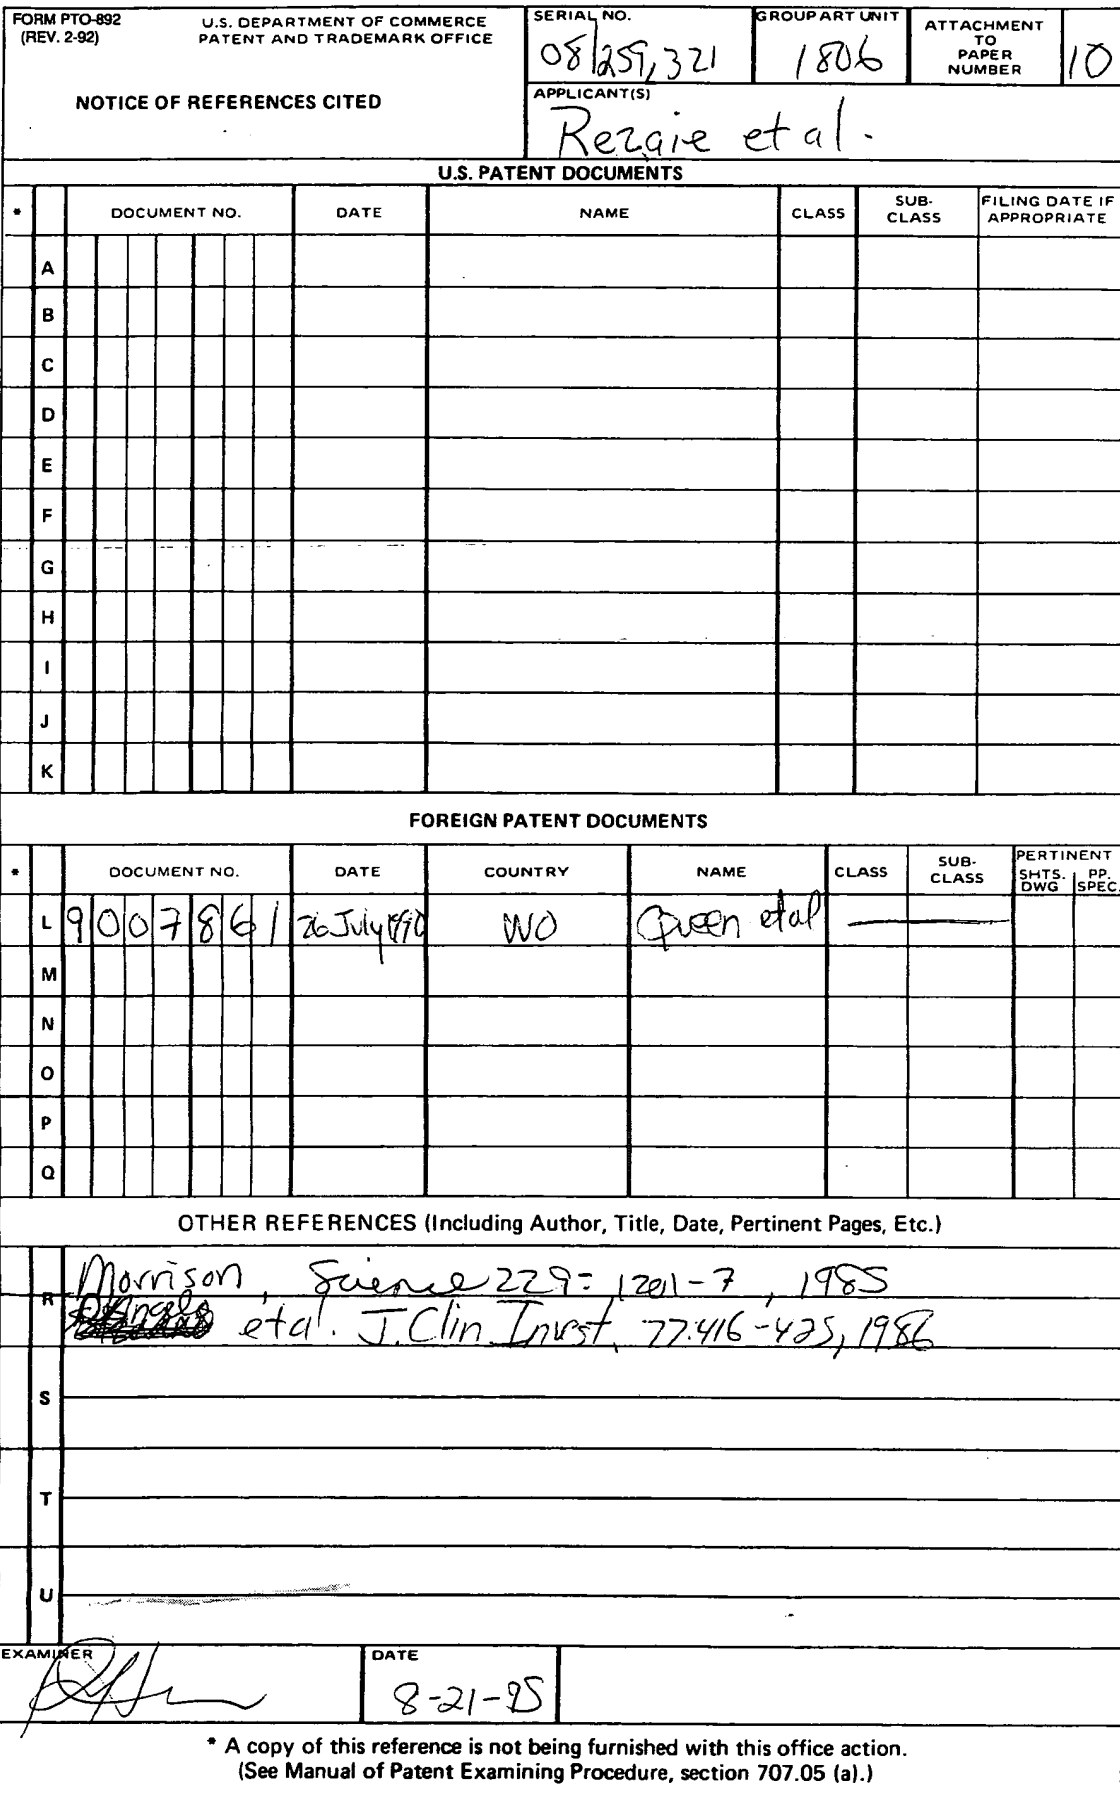 FORM PTO-892
(REV. 2-92)
U.S. DEPARTMENT OF COMMERCE
PATENT AND TRADEMARK OFFICE
NOTICE OF REFERENCES CITED
SERIAL NO.
08/259,321
GROUP ART UNIT
1806
ATTACHMENT
TO
PAPER
NUMBER
10
APPLICANT(S)
Rezaie et al.
U.S. PATENT DOCUMENTS
* DOCUMENT NO. DATE NAME CLASS SUB-CLASS FILING DATE IF APPROPRIATE
A
B
C
D
E
F
G
H
I
J
K
FOREIGN PATENT DOCUMENTS
* DOCUMENT NO. DATE COUNTRY NAME CLASS SUB-CLASS PERTINENT SHTS. DWG PP. SPEC.
L 9007861 26 July 1990 WO Queen et al
M
N
O
P
Q
OTHER REFERENCES (Including Author, Title, Date, Pertinent Pages, Etc.)
Morrison, Science 229: 1201-7, 1985
R
D'Angelo et al. J. Clin Invest. 77:416-425, 1986
S
T
U
EXAMINER
DATE
8-21-95
* A copy of this reference is not being furnished with this office action.
(See Manual of Patent Examining Procedure, section 707.05 (a).)